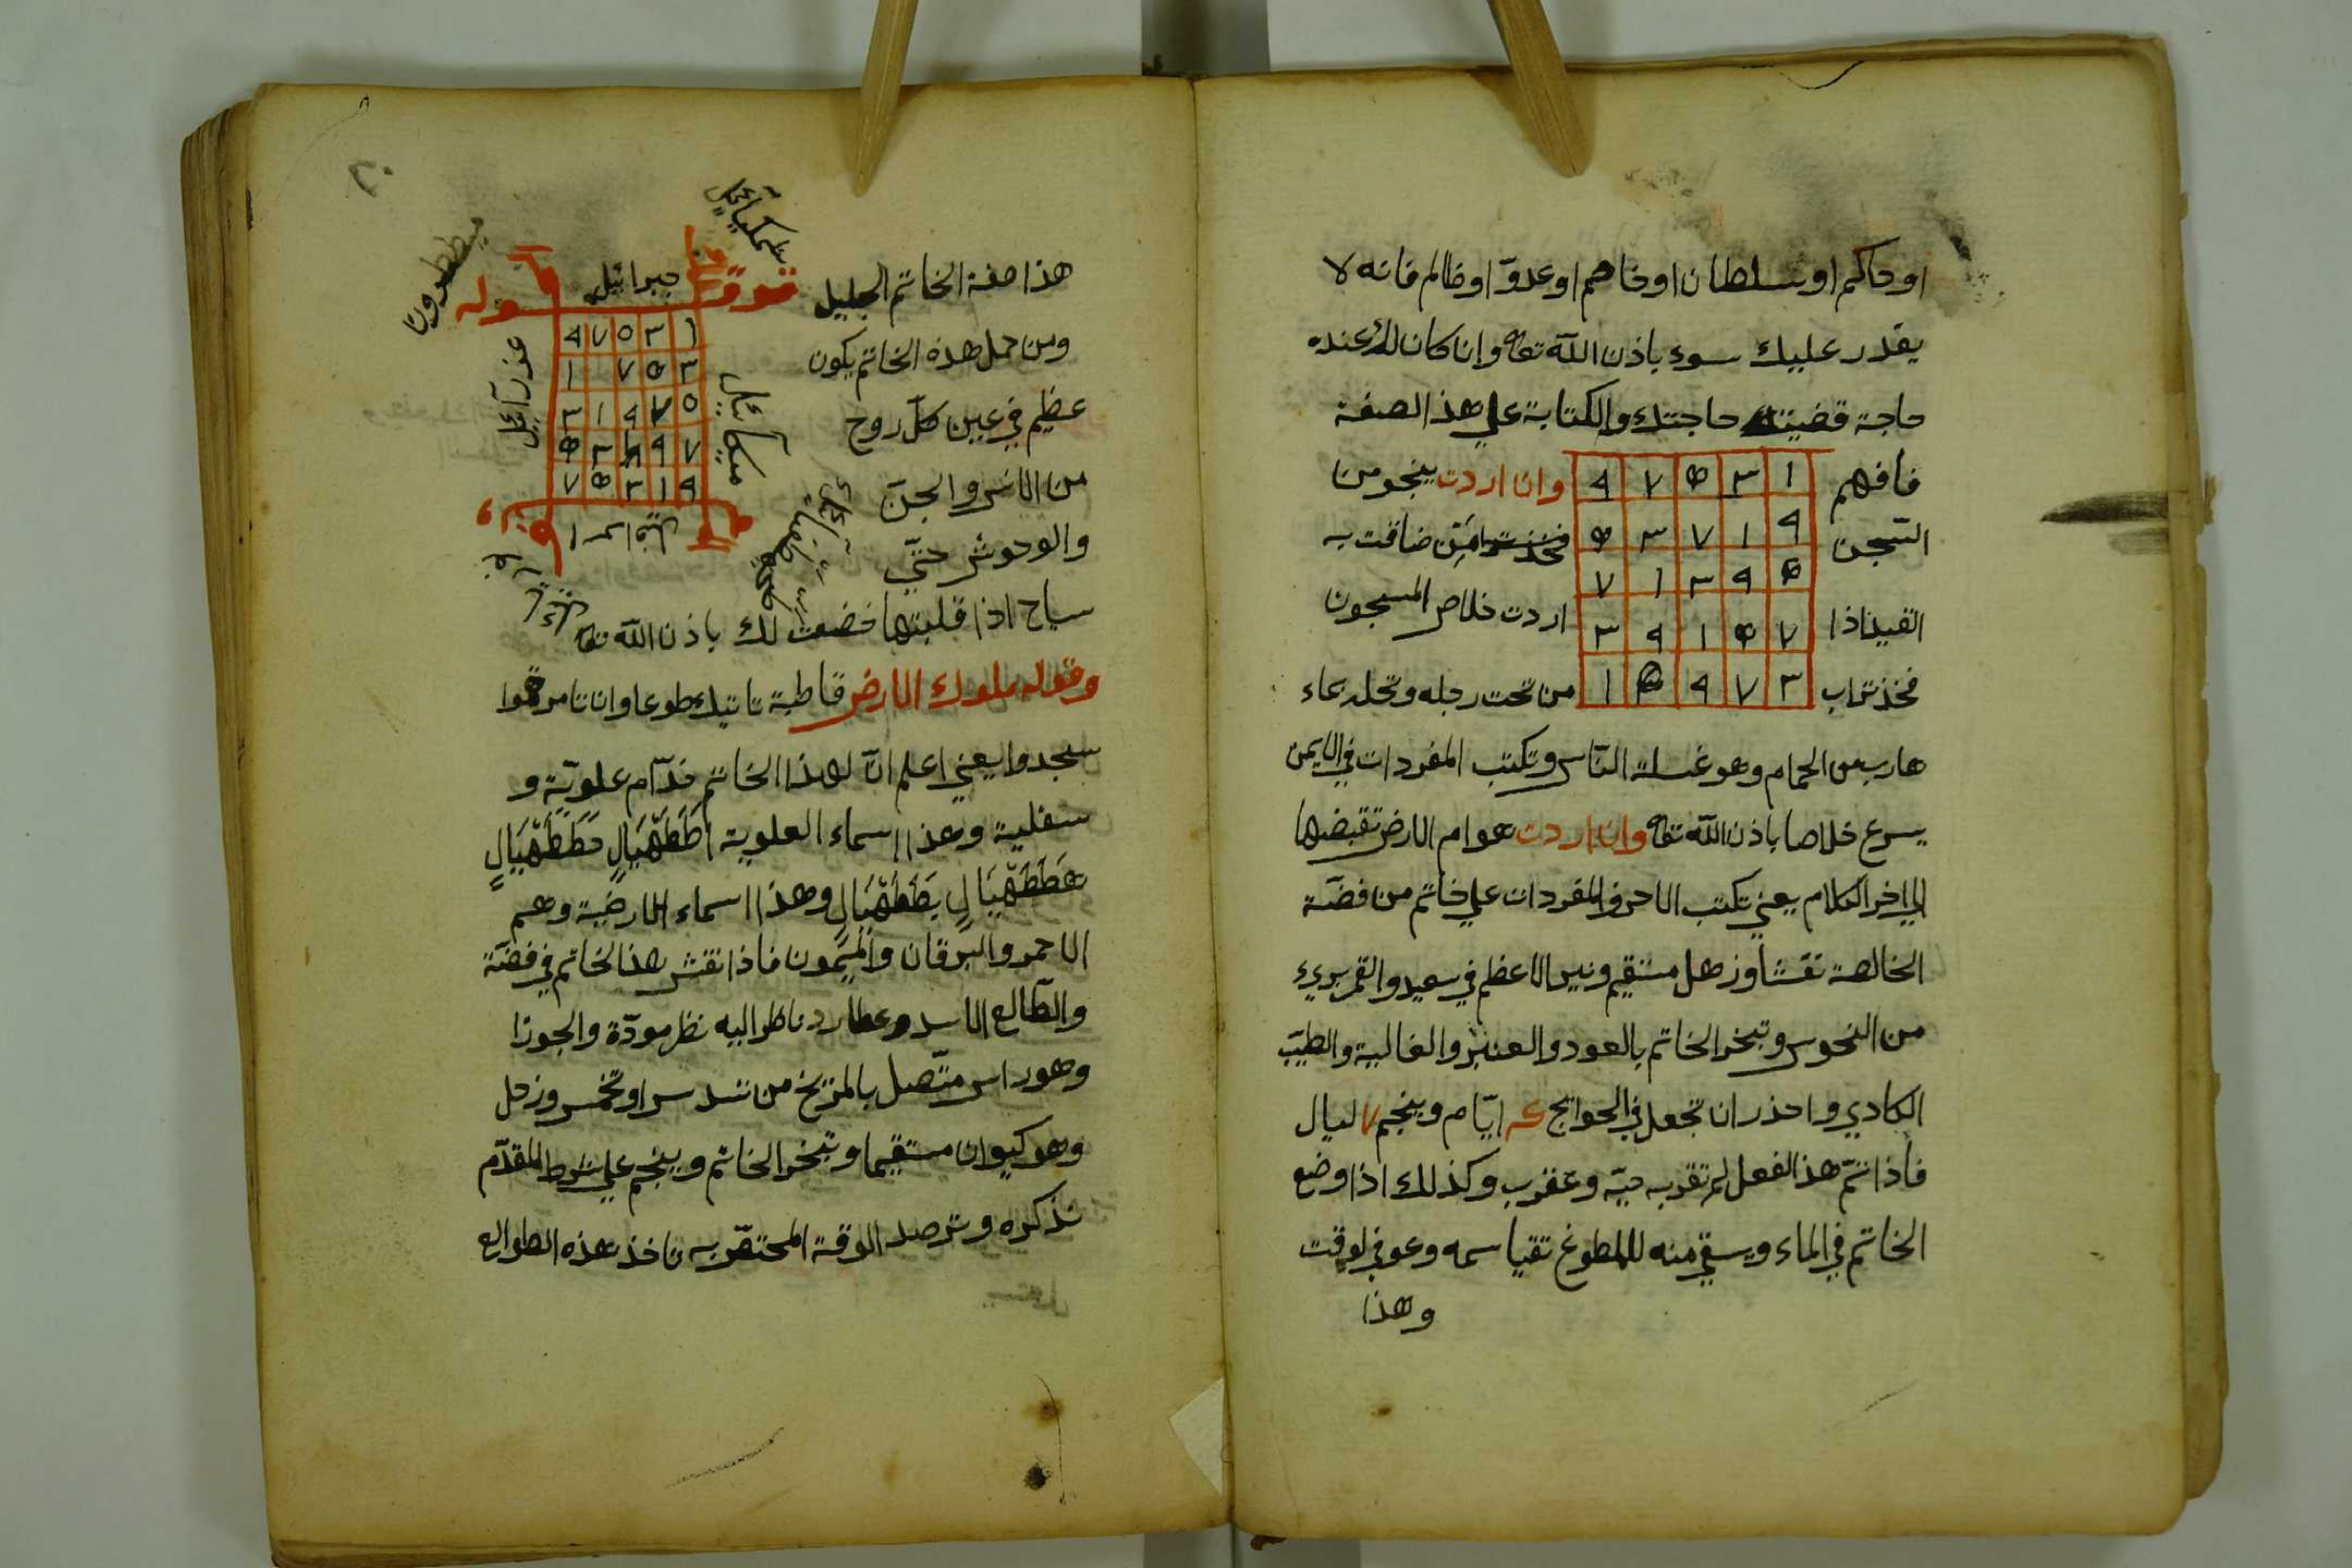 او حاكم او سلطان او خاصم او عدوّ او ظالم فانه لا
يقدر عليك سوء باذن الله تعا وان كان لك عنده
حاجة قضيت حاجتك والكتابة علي هذا الصفة
فافهم
١ ٣ ٥ ٧ ٩
وان اردت ينجو من
السّجن
٩ ١ ٧ ٣ ٥
ضاقت به
٥ ٩ ٣ ١ ٧
القيد اذا
٧ ٥ ١ ٩ ٣
اردت خلاص المسجون
فخذ تراب
٣ ٧ ٩ ٥ ١
من تحت رجله وتحله بماء
هارب من الحمام وهو غسلة النّاس وتكتب المفردات في اليمن
يسرع خلاصا باذن الله تعا وان اردت هوام الارض تقبضها
الي اخر الكلام يعني تكتب الاحرف المفردات علي خاتم من فضّة
الخالصة نقشا وزحل مستقيم ونير الاعظم في سعيد والقمر بريء
من النحوس وتبخر الخاتم بالعود والعنبر والغالية والطيّب
الكادي واحذر ان تجعل في الحوايج ايّام وينجم ٧ ليال
فاذا تمّ هذا الفعل لم تقربه حيّة وعقرب وكذلك اذا وضع
الخاتم في الماء ويسقي منه للملطوغ تقيا سمه وعوفي لوقت
وهذا
٢٠
شمكيائيل
ميططرون
قوله
جبرائيل
عزرآئيل
ميكآئيل
١ ٣ ٥ ٧ ٩
٣ ٥ ٧ ١
٥ ٧ ٩ ١ ٣
٧ ٩ ١ ٣ ٥
٩ ١ ٣ ٥ ٧
هذا صفة الخاتم الجليل
ومن حمل هذه الخاتم يكون
عظيم في عين كلّ روح
من الانس والجنّ
والوحوش حتّي
سباح اذا قلبتها خضعت لك باذن الله تعا
وقوله ملوك الارض قاطبة تاتيك طوعا وان تامرهموا
سجدوا يعني اعلم انّ لهذا الخاتم خدّام علويّة و
سفلية وهذا اسماء العلوية اطَطَهْيَالٍ مَطَطَهْيَالٍ
هَطَطَهْيَالٍ يَطَطَهْيَالٍ وهذا اسماء الارضية وهم
الاحمر والبرقان والميمون فاذا نقش هذا لخاتم في فضّة
والطّالع الاسد وعطارد ناظر اليه نظر مودّة والجوزا
وهو راس متّصل بالمرّيخ من تسدس او تخمس وزحل
وهو كيوان مستقيما وتبخر الخاتم وينجم علي شرط المقدّم
نذكره وترصد الوقة المحتصّ به تاخذ هذه الطوالع